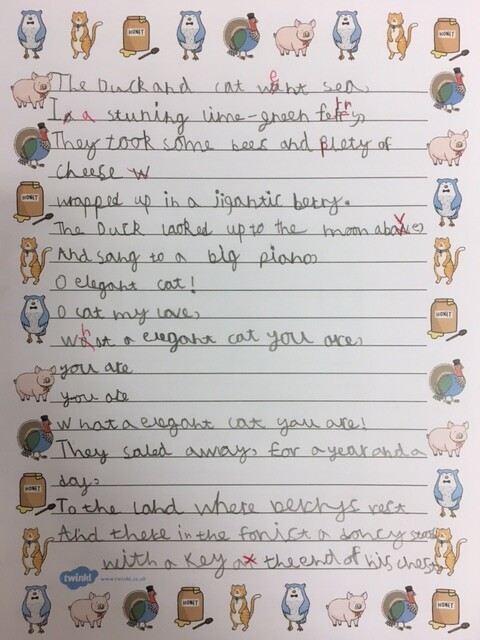 The Duck and cat went sea,
In a stuning lime-green ferry,
They took some bees and plety of
cheese w
wrapped up in a jigantic berry.
The Duck looked up to the moon above,
And sang to a big piano,
O elegant cat!
O cat my love,
What a elegant cat you are,
you are
you are
What a elegant cat you are!
They saled away, for a year and a
day,
To the land where berrys rest
And there in the forist a doncy stood
with a key at the end of his chest,
twinkl www.twinkl.co.uk
HONEY
HONEY
HONEY
HONEY
HONEY
HONEY
HONEY
HONEY